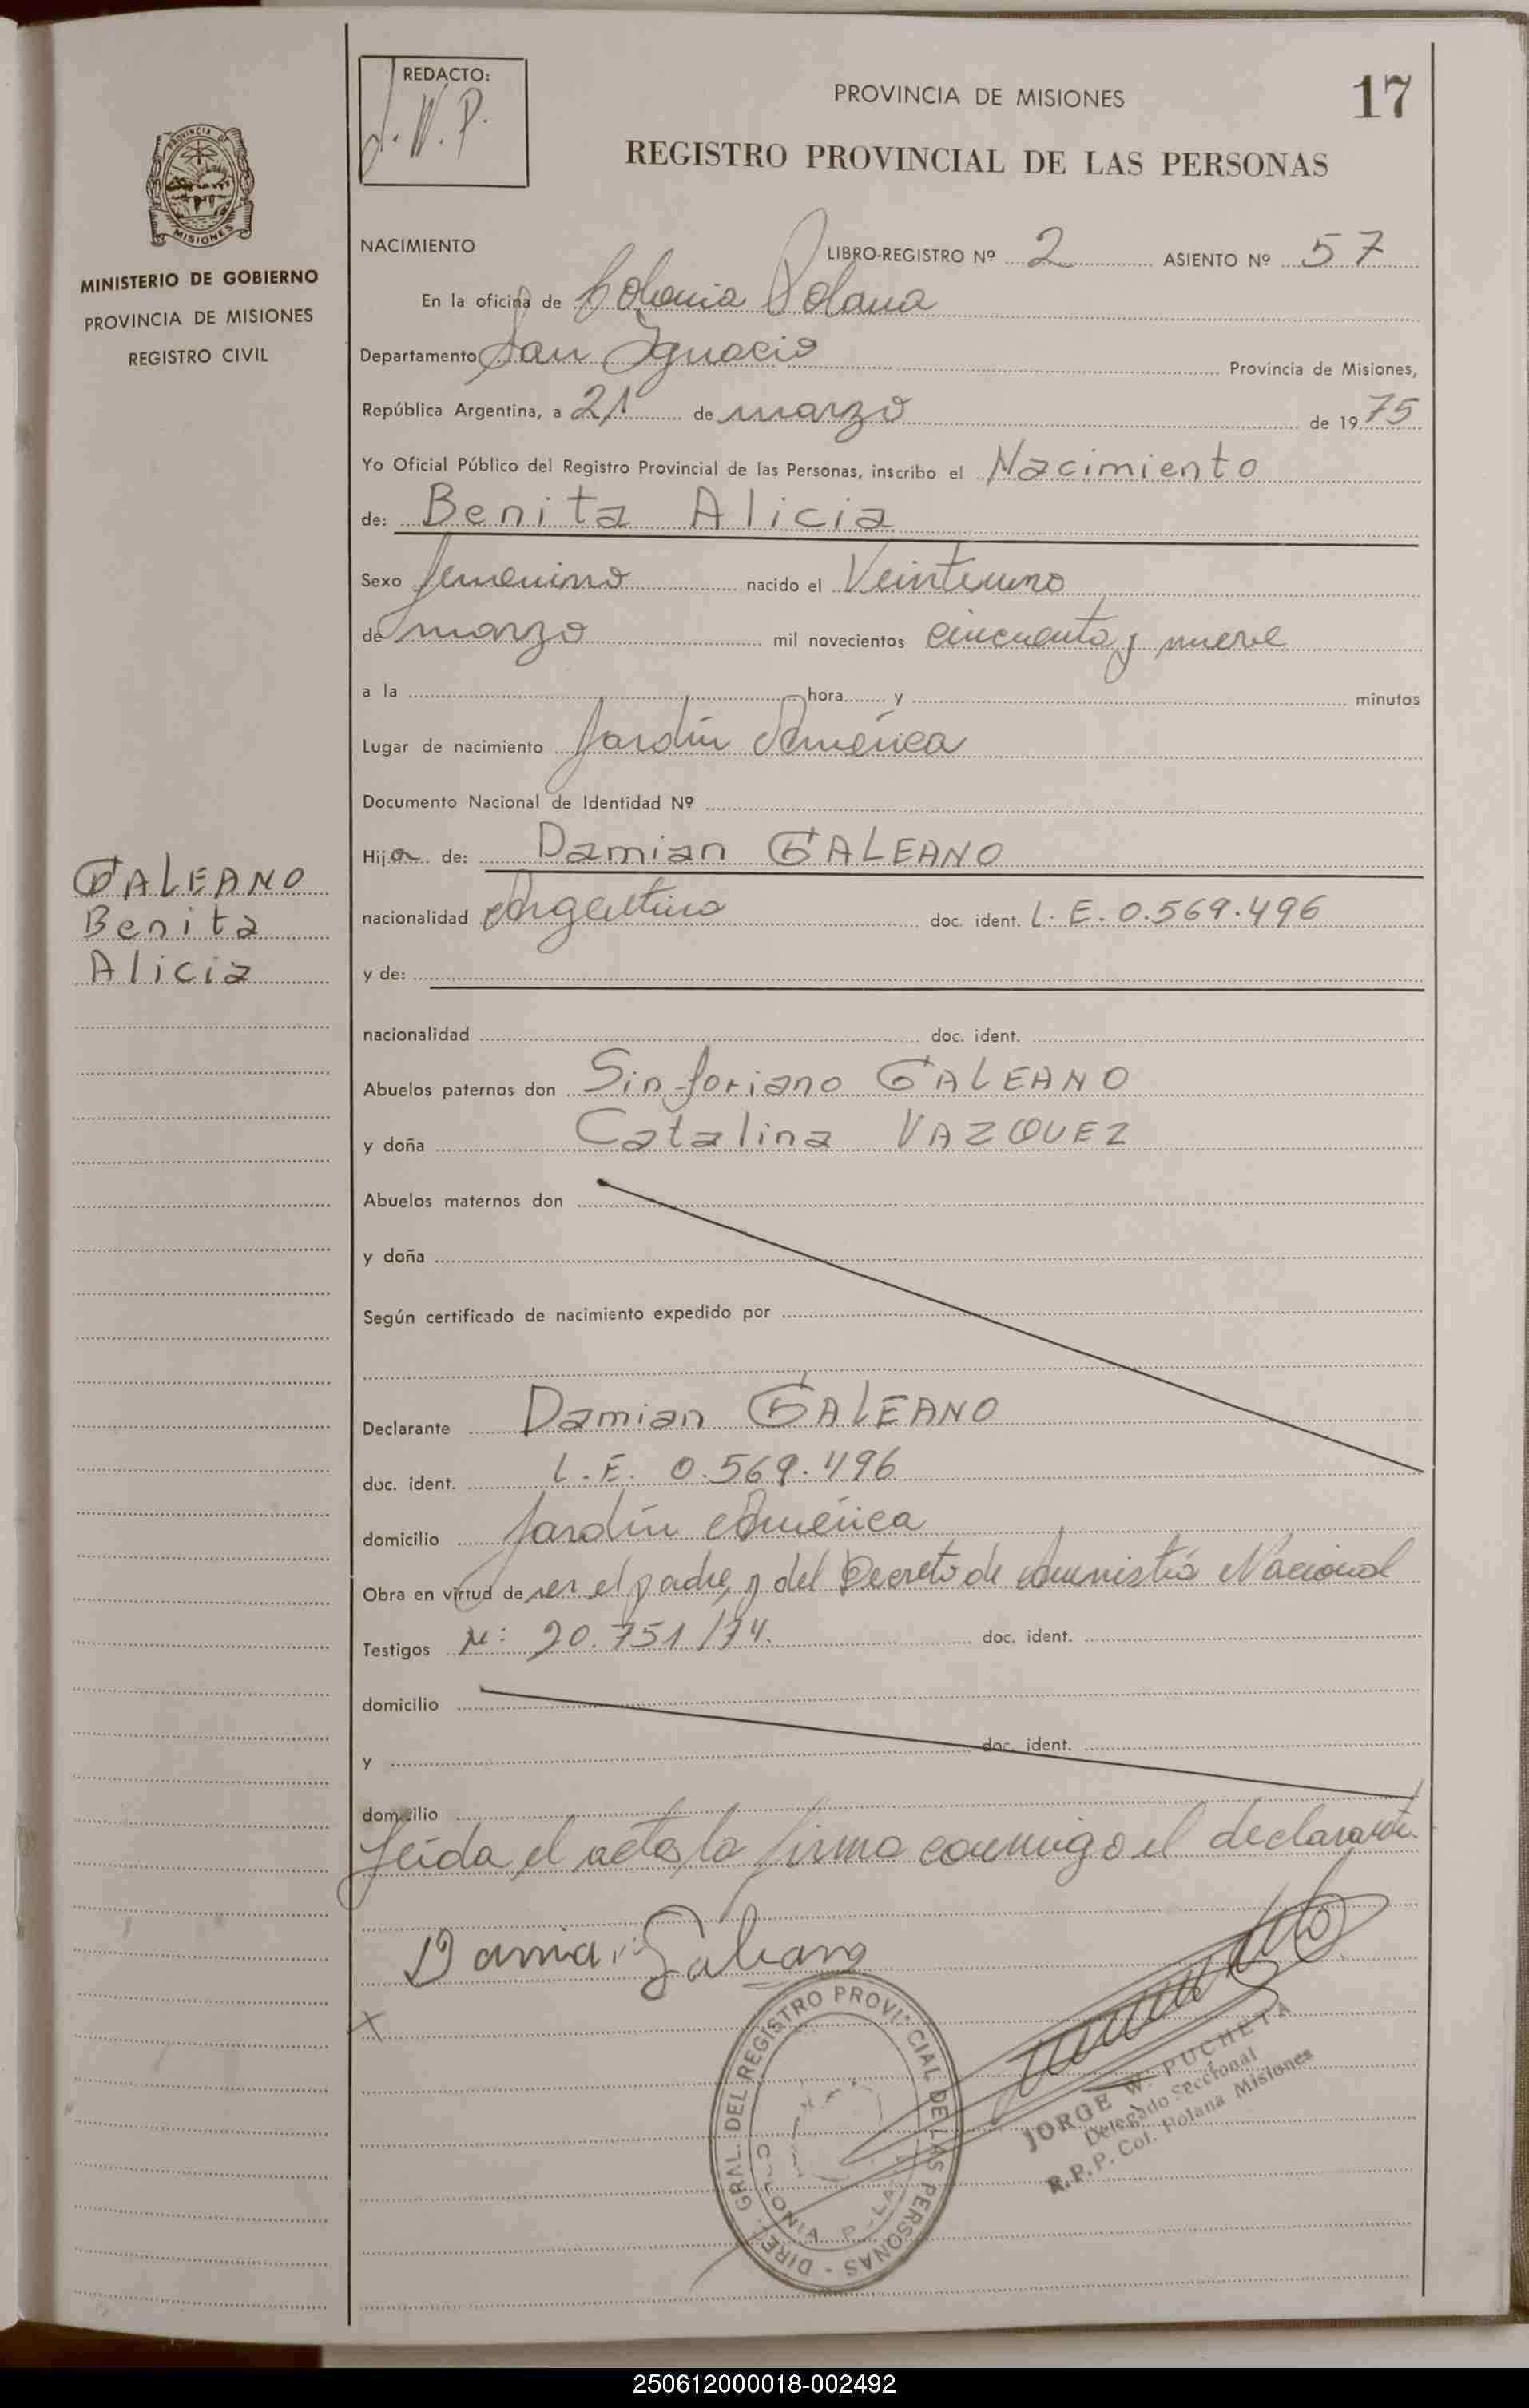 REDACTO:
J.W.P.
PROVINCIA DE MISIONES
17
REGISTRO PROVINCIAL DE LAS PERSONAS
PROVINCIA DE
MISIONES
MINISTERIO DE GOBIERNO
PROVINCIA DE MISIONES
REGISTRO CIVIL
NACIMIENTO LIBRO-REGISTRO Nº 2 ASIENTO Nº 57
En la oficina de Colonia Polana
Departamento San Ignacio Provincia de Misiones,
República Argentina, a 21 de marzo de 1975
Yo Oficial Público del Registro Provincial de las Personas, inscribo el Nacimiento
de: Benita Alicia
Sexo femenino nacido el Veintiuno
de marzo mil novecientos cincuenta y nueve
a la hora y minutos
Lugar de nacimiento Jardín América
Documento Nacional de Identidad Nº
Hija de: Damian GALEANO
GALEANO
Benita
Alicia
nacionalidad Argentino doc. ident. L.E. 0.569.496
y de:
nacionalidad doc. ident.
Abuelos paternos don Sinforiano GALEANO
y doña Catalina VAZQUEZ
Abuelos maternos don
y doña
Según certificado de nacimiento expedido por
Declarante Damian GALEANO
doc. ident. L.E. 0.569.496
domicilio Jardín América
Obra en virtud de ser el padre y del Decreto de Amnistía Nacional
Testigos Nº: 20.751/74. doc. ident.
domicilio
y doc. ident.
domicilio
Leída el acta la firma conmigo el declarante.
Damian Galeano
DIREC. GRAL. DEL REGISTRO PROVINCIAL DE LAS PERSONAS -
COLONIA POLANA
JORGE W. PUCHETA
Delegado Seccional
R.P.P. Col. Polana Misiones
250612000018-002492